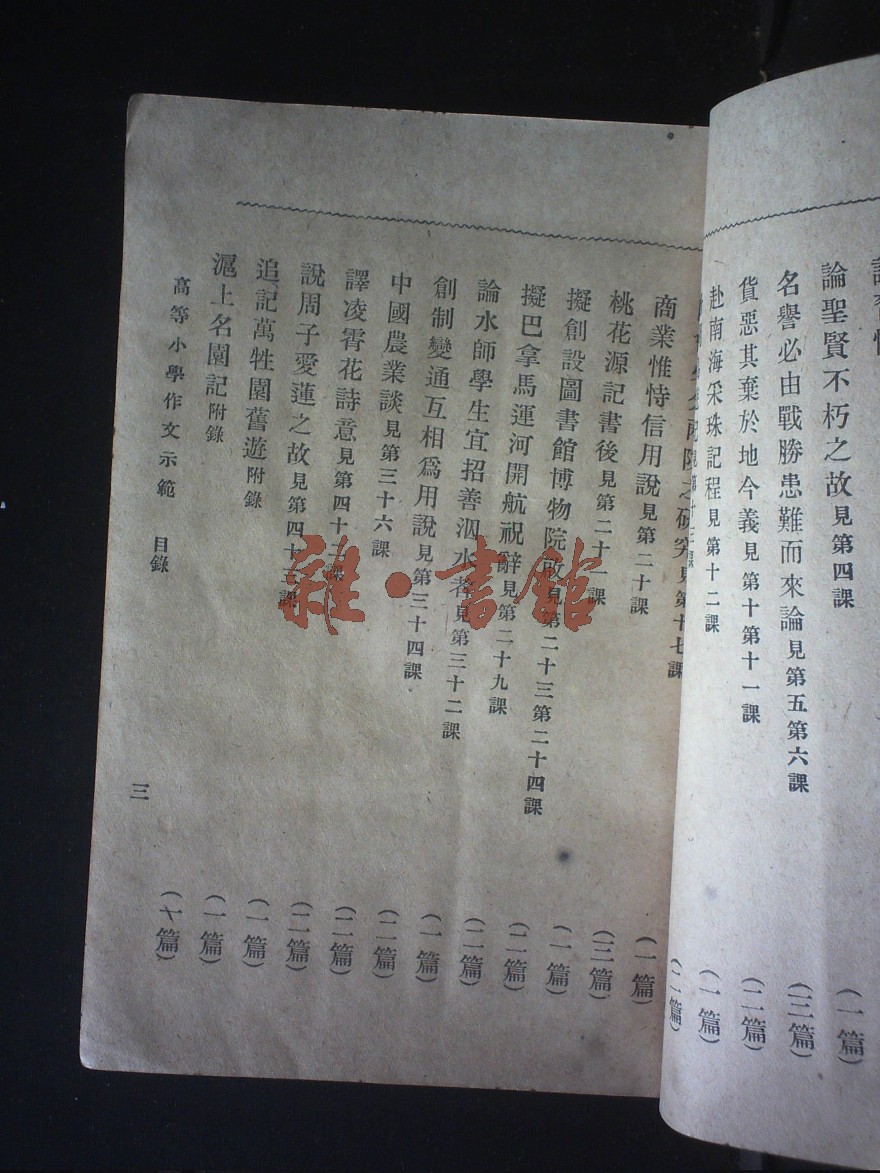 論聖賢不朽之故見第四課（一篇）
名譽必由戰勝患難而來論見第五第六課（三篇）
貨惡其棄於地今義見第十第十一課（二篇）
赴南海采珠記程見第十二課（一篇）
（二篇）
兩院之研究見第十七課（一篇）
商業惟恃信用說見第二十課（三篇）
桃花源記書後見第二十一課（一篇）
擬創設圖書館博物院啟見第二十三第二十四課（二篇）
擬巴拿馬運河開航祝辭見第二十九課（二篇）
論水師學生宜招善泅水者見第三十二課（一篇）
創制變通互相爲用說見第三十四課（二篇）
中國農業談見第三十六課（二篇）
譯凌霄花詩意見第四十二課（二篇）
說周子愛蓮之故見第四十五課（一篇）
追記萬牲園舊遊附錄（一篇）
滬上名園記附錄（十篇）
高等小學作文示範 目錄
三
雜·書館